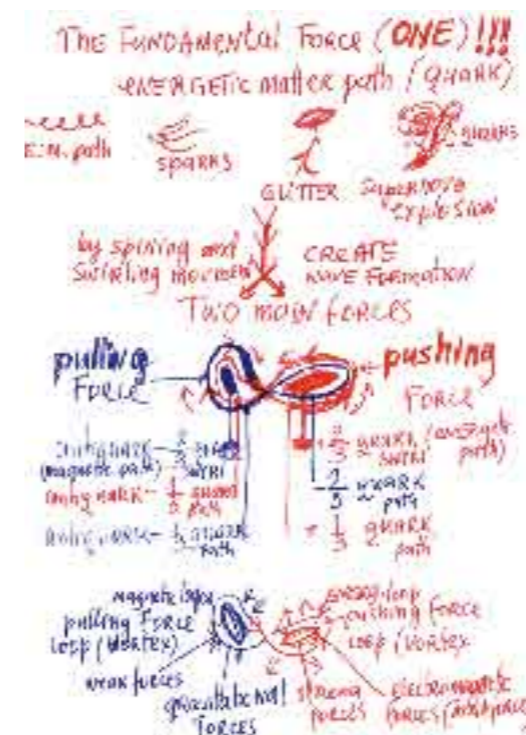 THE FUNDAMENTAL FORCE (ONE)!!!
ENERGETIC MATTER path (QUARK)
E.M. path
SPARKS
GLITTER
QUARKS
SUPERNOVA
EXPLOSION
by spining and
Swirling movement
CREATE
WAVE FORMATION
TWO MAIN FORCES
pulling
FORCE
pushing
FORCE
(magnetic path)
antiquark - 1/3 QUARK
path
+ 2/3 QUARK (energetic
path)
- 2/3 QUARK
path
+ 1/3 QUARK
path
magnetic loop
pulling FORCE
loop (VORTEX)
weak forces
gravitational
FORCES
energy loop
pushing FORCE
loop (VORTEX)
strong
forces
ELECTROMAGNETIC
FORCES